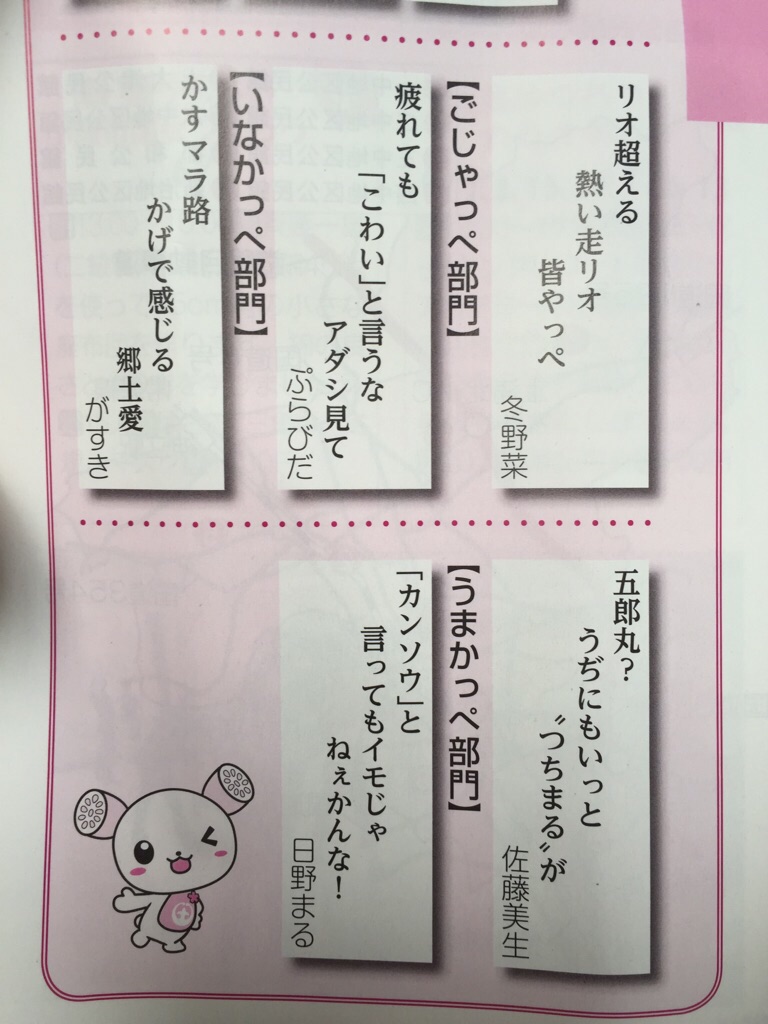 リオ超える
熱い走リオ
皆やっぺ
冬野菜
【ごじゃっぺ部門】
疲れても
「こわい」と言うな
アダシ見て
ぷらびだ
【いなかっぺ部門】
かすマラ路
かげで感じる
郷土愛
がすき
五郎丸？
うぢにもいっと
〝つちまる〟が
佐藤美生
【うまかっぺ部門】
「カンソウ」と
言ってもイモじゃ
ねぇかんな！
日野まる